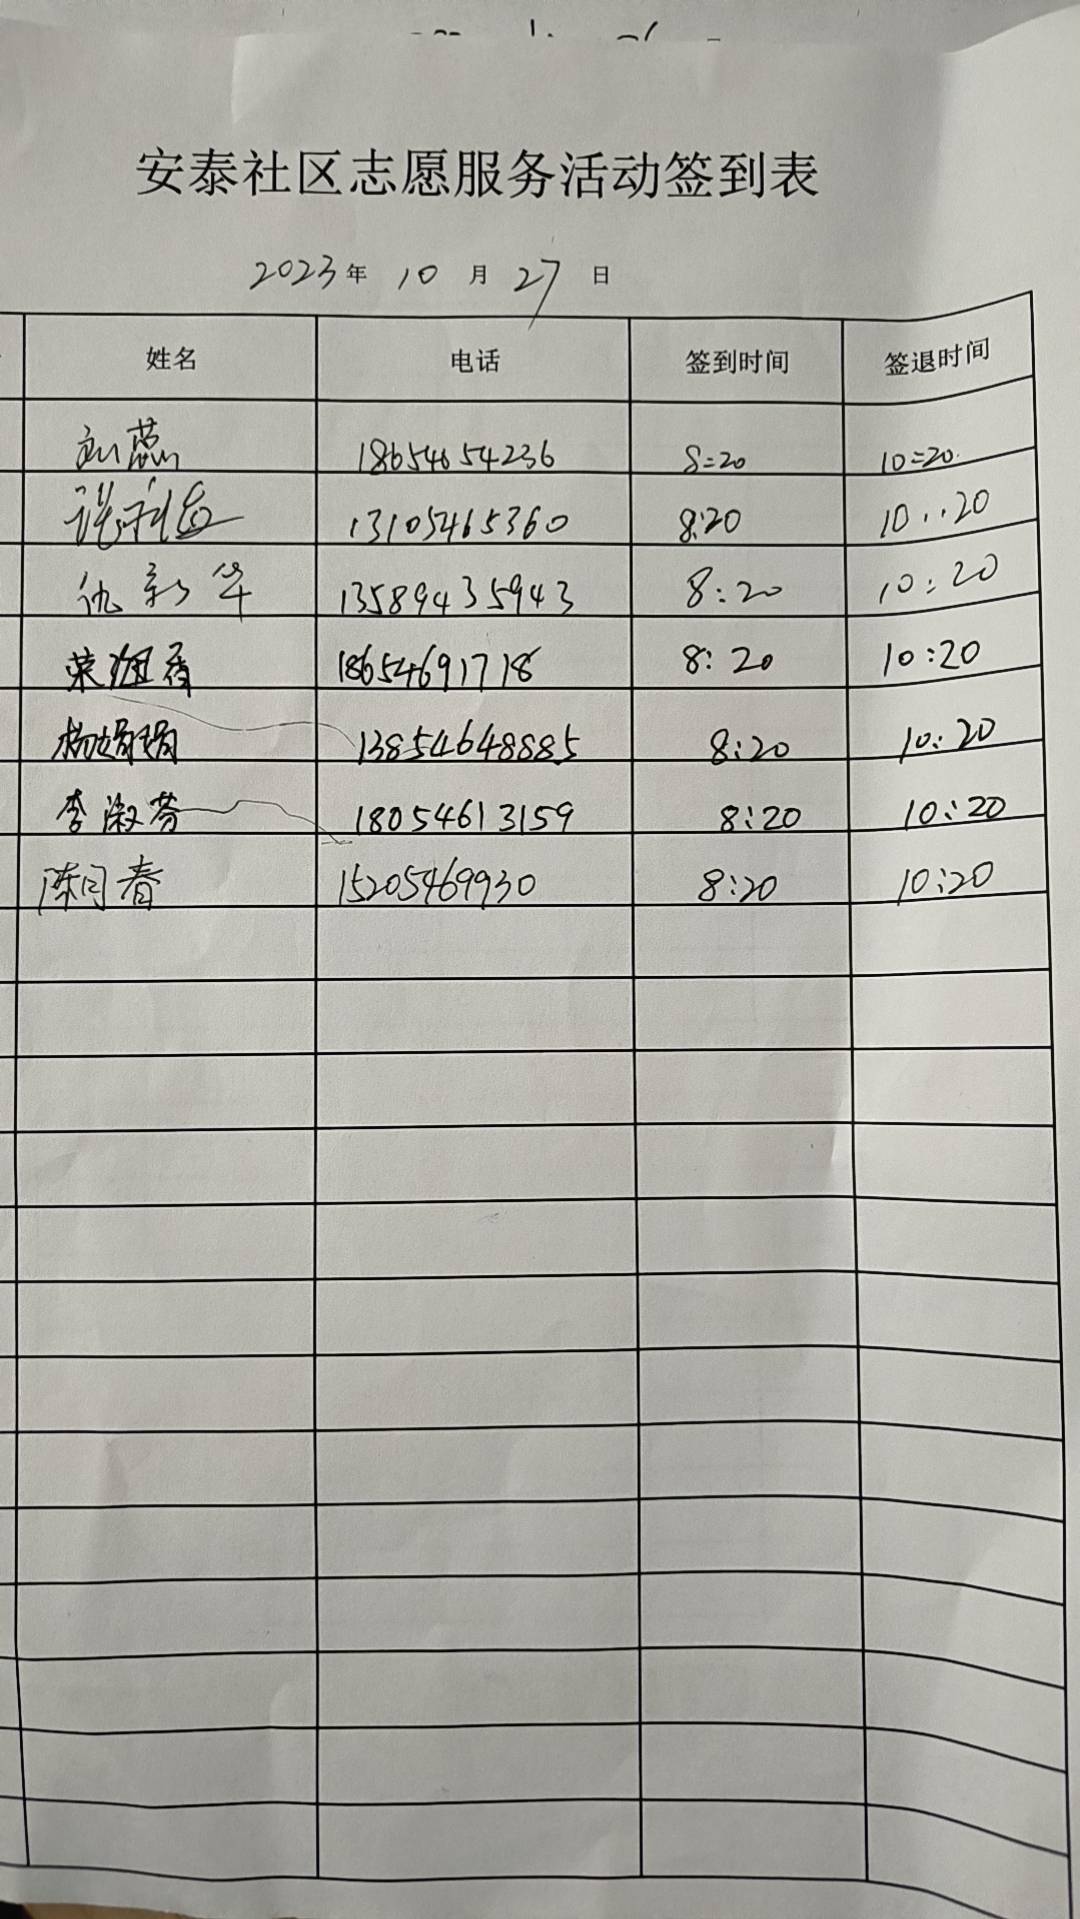 安泰社区志愿服务活动签到表
2023年 10 月 27 日
姓名 电话 签到时间 签退时间
刘蕊 18654654236 8=20 10=20
13105465360 8:20 10..20
仇新华 13589435943 8:20 10:20
荣 香 18654691718 8:20 10:20
杨娟娟 13854648885 8:20 10:20
李淑芳 18054613159 8:20 10:20
陈同春 15205469930 8:20 10:20